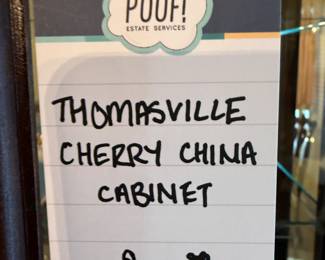 POOF!
ESTATE SERVICES
THOMASVILLE
CHERRY CHINA
CABINET